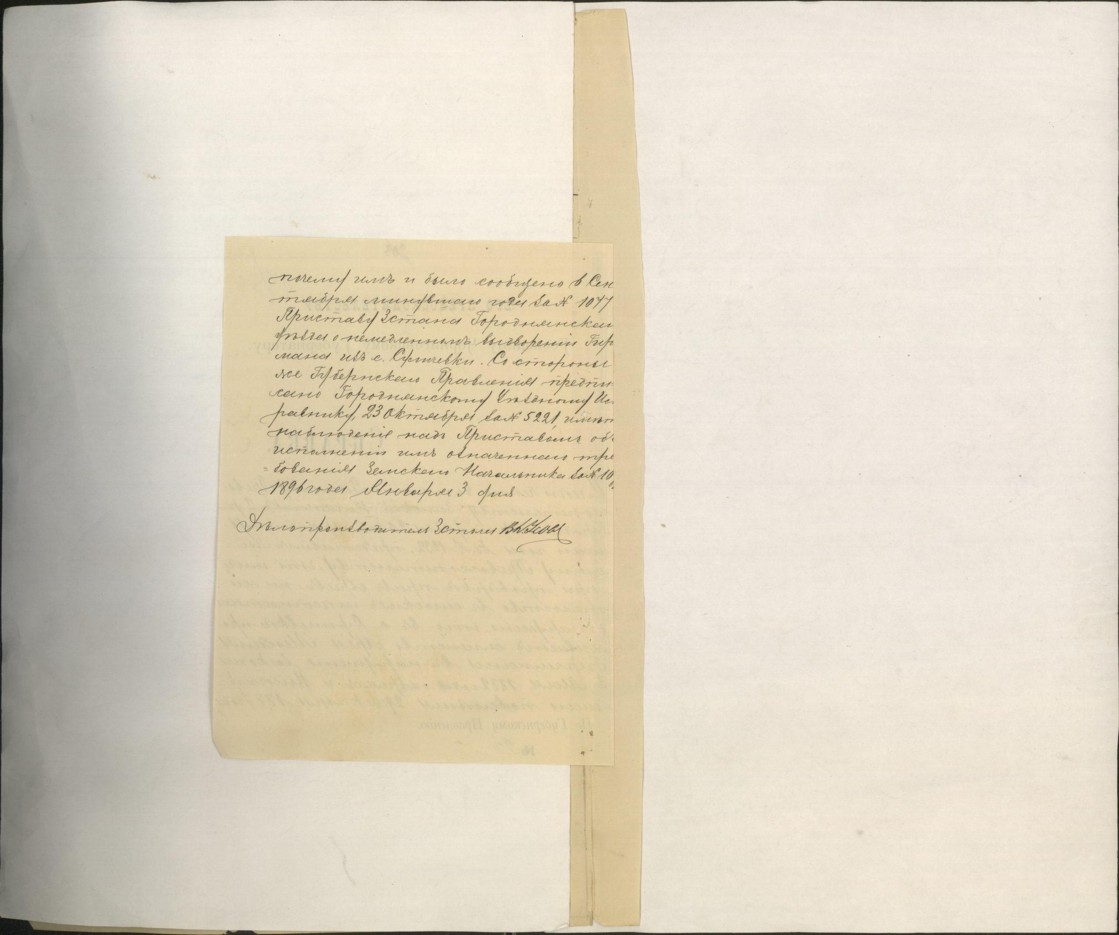 почему имъ и было сообщено 6 Сен
тября минувшаго года за № 1077
Приставу 3 стана Городнянскаго
уѣзда о немедленномъ выдвореніи Гер
мана изъ с. Со стороны
же Губернскаго Правленія предпи
сано Городнянскому Уѣздному Ис
равнику, 23 Октября за № 5221 имѣть
наблюденіе надъ Приставомъ объ
исполненіи имъ означеннаго тре
=бованія Земскаго Начальника за № 10
1896 года Января 3 дня
Дѣлопроизводитель 3 стола